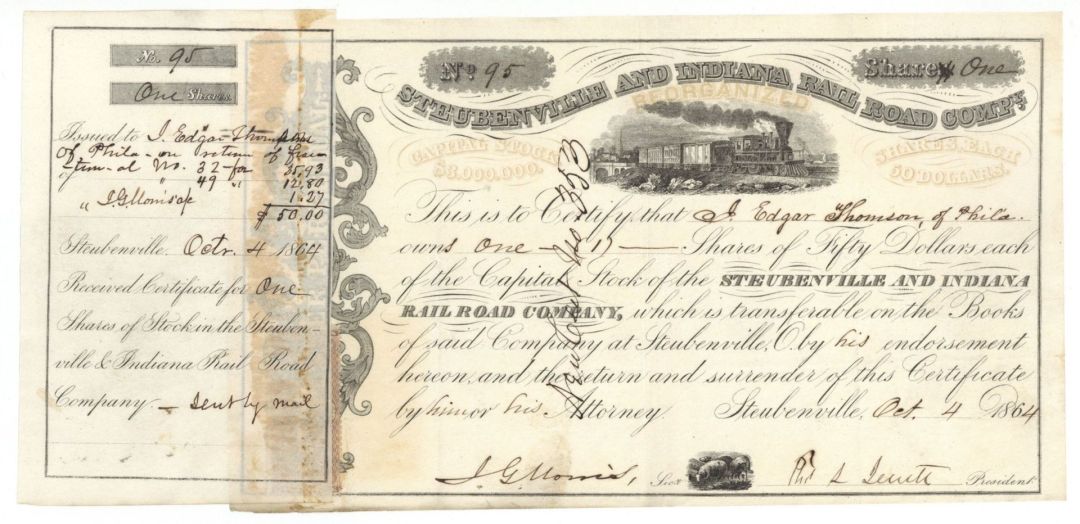 No. 95
One Shares
Issued to J. Edgar Thomson
of Phila - on return of frac
tional No. 32 - for 35.93
" 49 " 12.80
" J. G. Morris a/c 1.27
$ 50.00
Steubenville. Octr. 4 1864
Received Certificate for One
Shares of Stock in the Steuben-
ville & Indiana Rail Road
Company. - Sent by mail
No. 95
Share One
STEUBENVILLE AND INDIANA RAIL ROAD COMPY.
REORGANIZED
CAPITAL STOCK
$3,000,000.
SHARES, EACH
50 DOLLARS.
This is to Certify, that J. Edgar Thomson, of Phila.
owns One (1) Shares of Fifty Dollars each
of the Capital Stock of the STEUBENVILLE AND INDIANA
RAIL ROAD COMPANY, which is transferable on the Books
of said Company at Steubenville, O. by his endorsement
hereon, and the return and surrender of this Certificate
by him or his Attorney. Steubenville, Oct. 4 1864
J. G. Morris, Secy.
President.